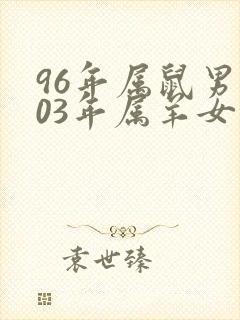 96年属鼠男
03年属羊女
袁世臻